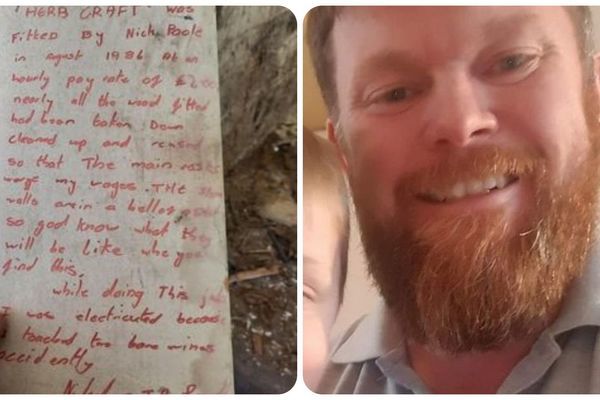 "HERB CRAFT" was
Fitted By Nick Poole
in august 1986 At an
hourly pay rate of £2.00
nearly all the wood fitted
had been taken Down
cleaned up and reused
so that The main
were my wages. THE
walls are in a
so god know what they
will be like whe you
find this.
while doing This job
I was electricuted because
I touched two bare wires
accidently